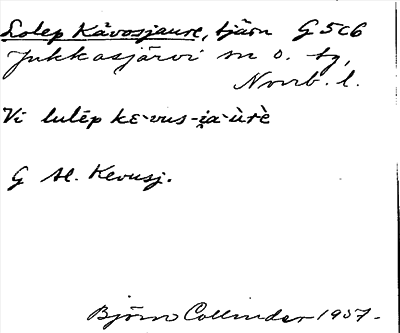 Lolep Kåvosjaure, tjärn G 5c6
Jukkasjärvi sn o. tg,
Norrb. l.
Vi lulēp kɛ·vus-i̯a·ùrè
G Al. Kevusj.
Björn Collinder 1957.